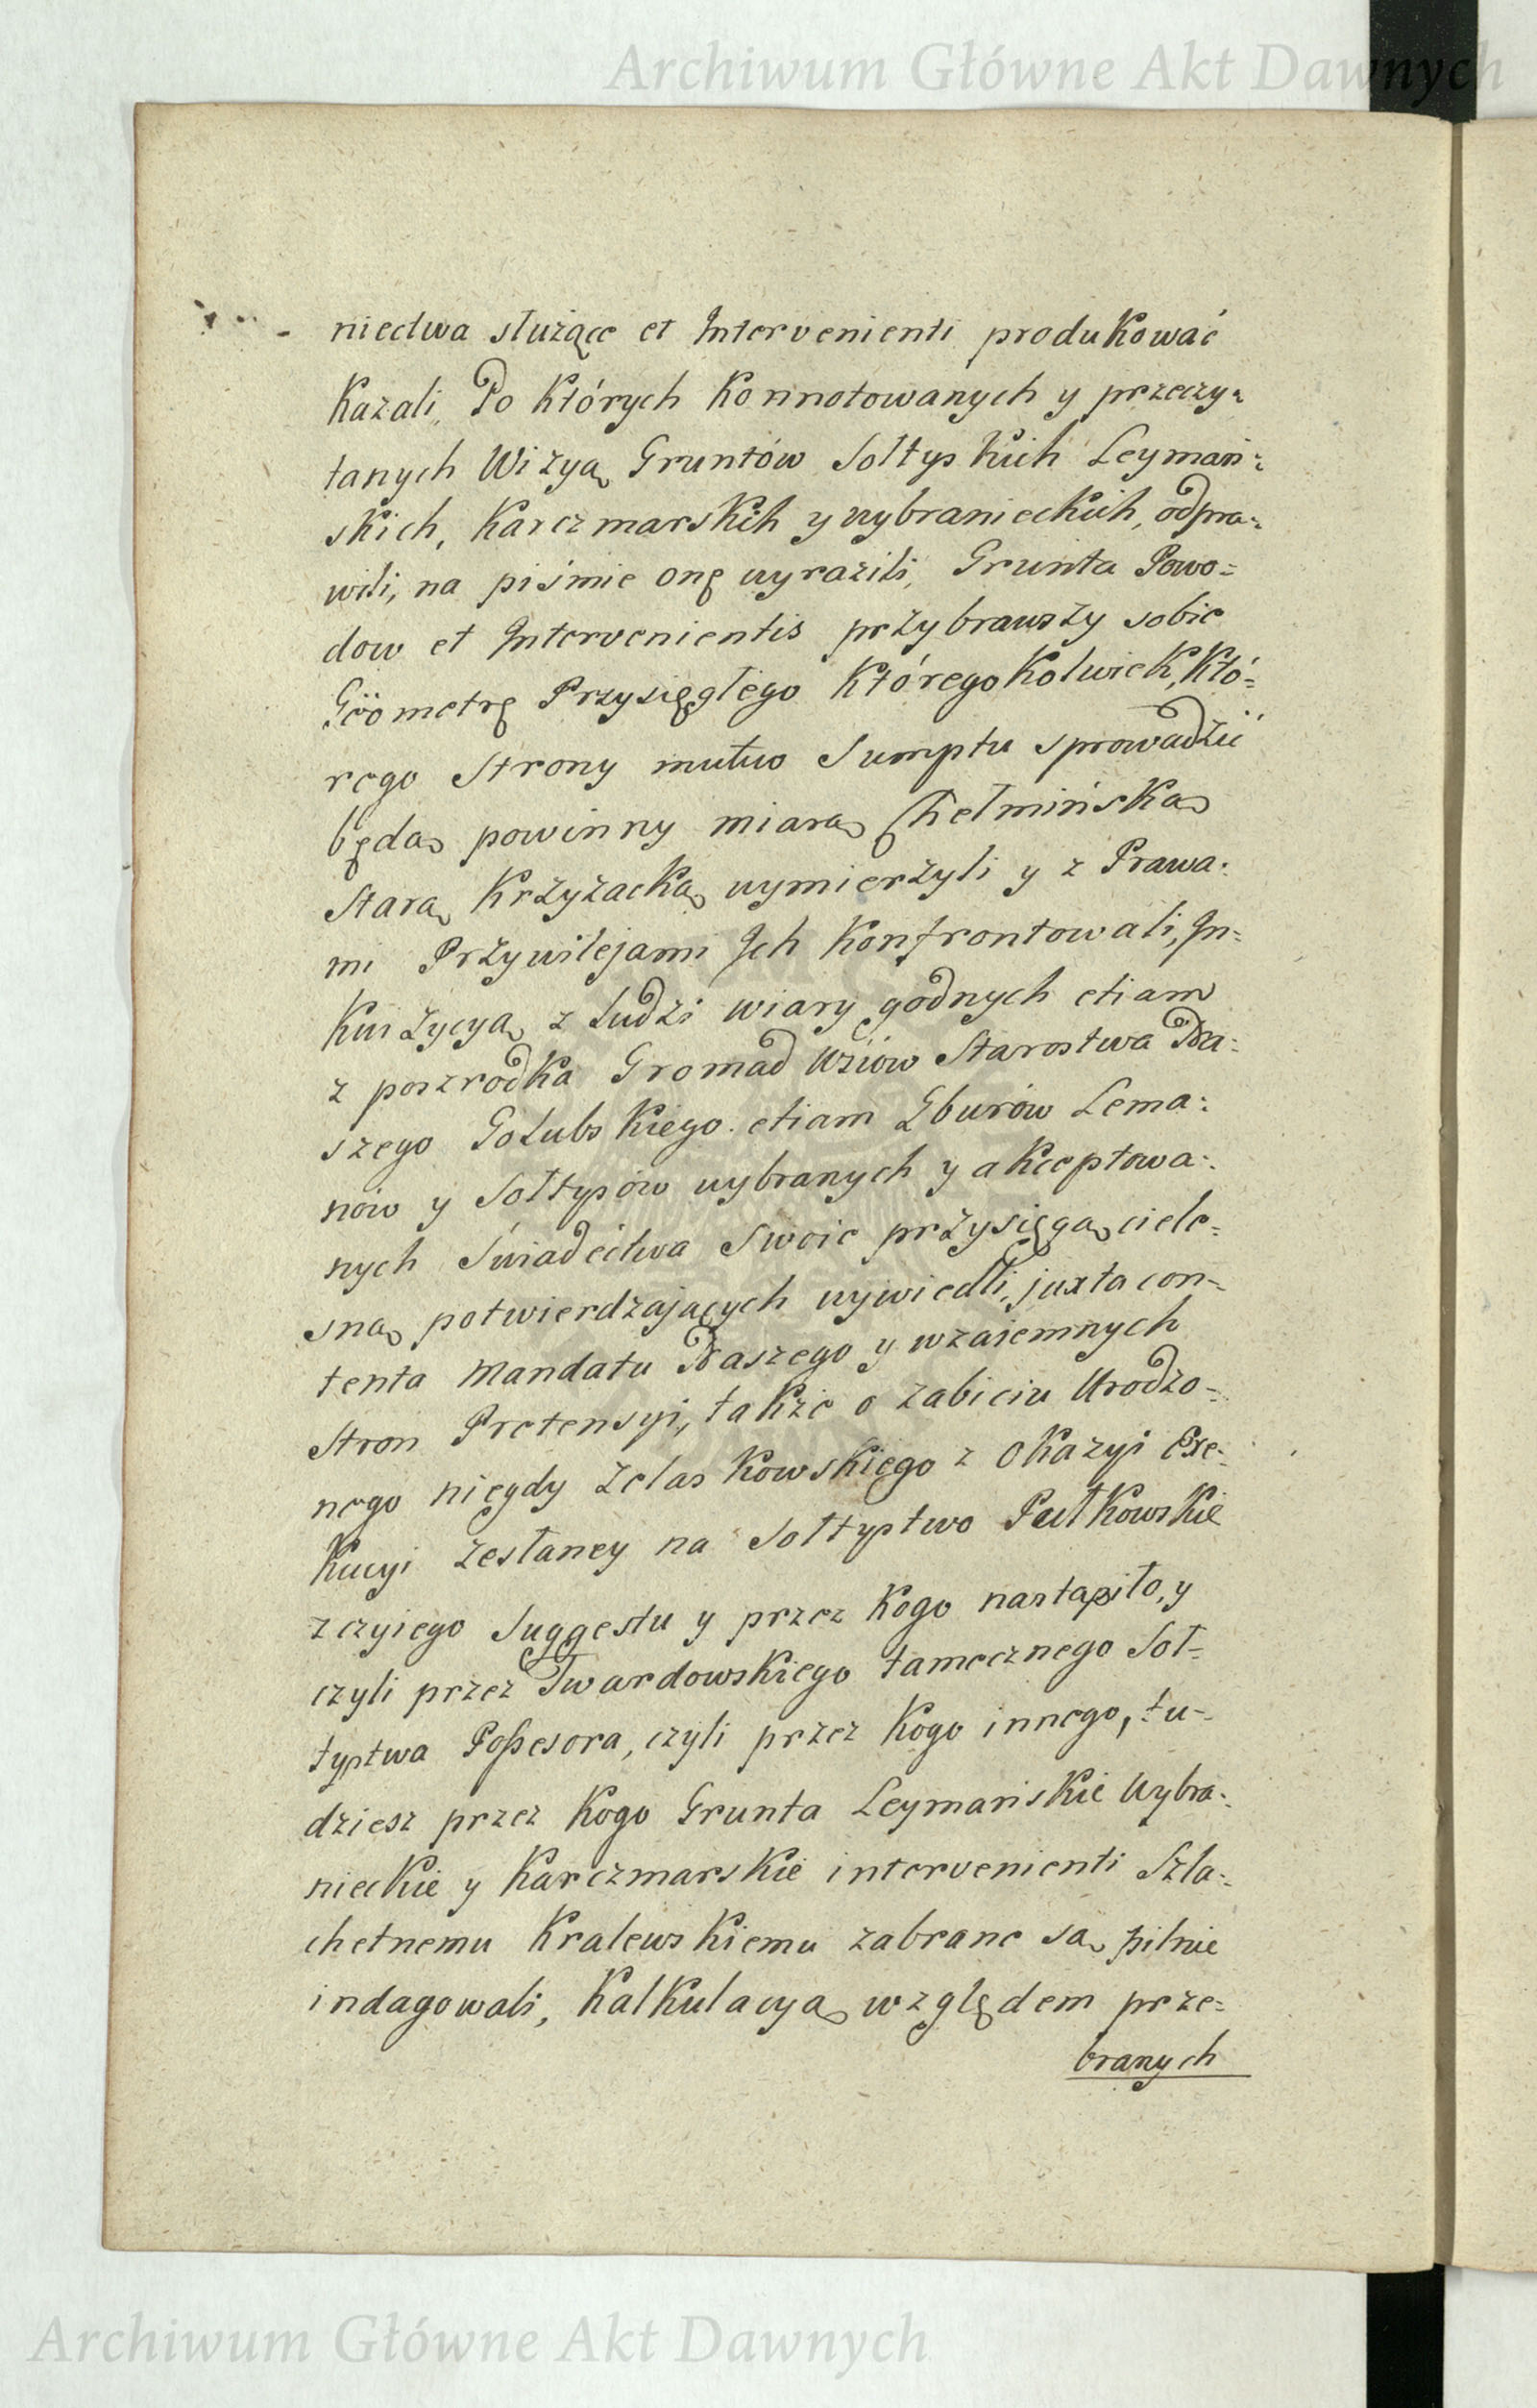 Archiwum Główne Akt Dawnych
niectwa służące et Intervenienti produkować
Kazali, Po Których Konnotowanych y przeczy=
tanych Wizyą Gruntów Sołtyskich Leymań=
skich, Karczmarskich y wybranieckich, odpra=
wili, na piśmie onę wyrazili, Grunta Powo=
dow et Intervenientis przybrawszy sobie
Gëometrę Przysięgłego Któregokolwiek, Któ=
rego Strony mutuo Sumptu sprowadzić
będą powinny miarą Chełmińską
Starą Krzyżacką wymierzyli y z Prawa=
mi Przywilejami Ich Konfrontowali, In=
Kwizycyą z Ludzi wiary godnych etiam
z poszrodka Gromad Wsiów Starostwa Na=
szego Golubskiego etiam Gburów Lema=
nów y Sołtysów wybranych y akceptowa=
nych Świadectwa Swoie przysięgą ciele=
sną potwierdzających wywiedli, juxta con=
tenta Mandatu Naszego y wzaiemnych
Stron Pretensyi, także o zabiciu Urodzo=
nego niegdy Zelaskowskiego z Okazyi Exe=
Kucyi zesłaney na Sołtystwo Pułkowskie
z czyiego Suggestu y przez Kogo nastąpiło, y
czyli przez Twardowskiego tamecznego Soł=
tystwa Possesora, czyli przez Kogo innego, tu=
dziesz przez Kogo Grunta Leymańskie Wybra=
nieckie y Karczmarskie intervenienti Szla=
chetnemu Kralewskiemu zabrane są pilnie
indagowali, Kalkulacyą względem prze=
branych
Archiwum Główne Akt Dawnych